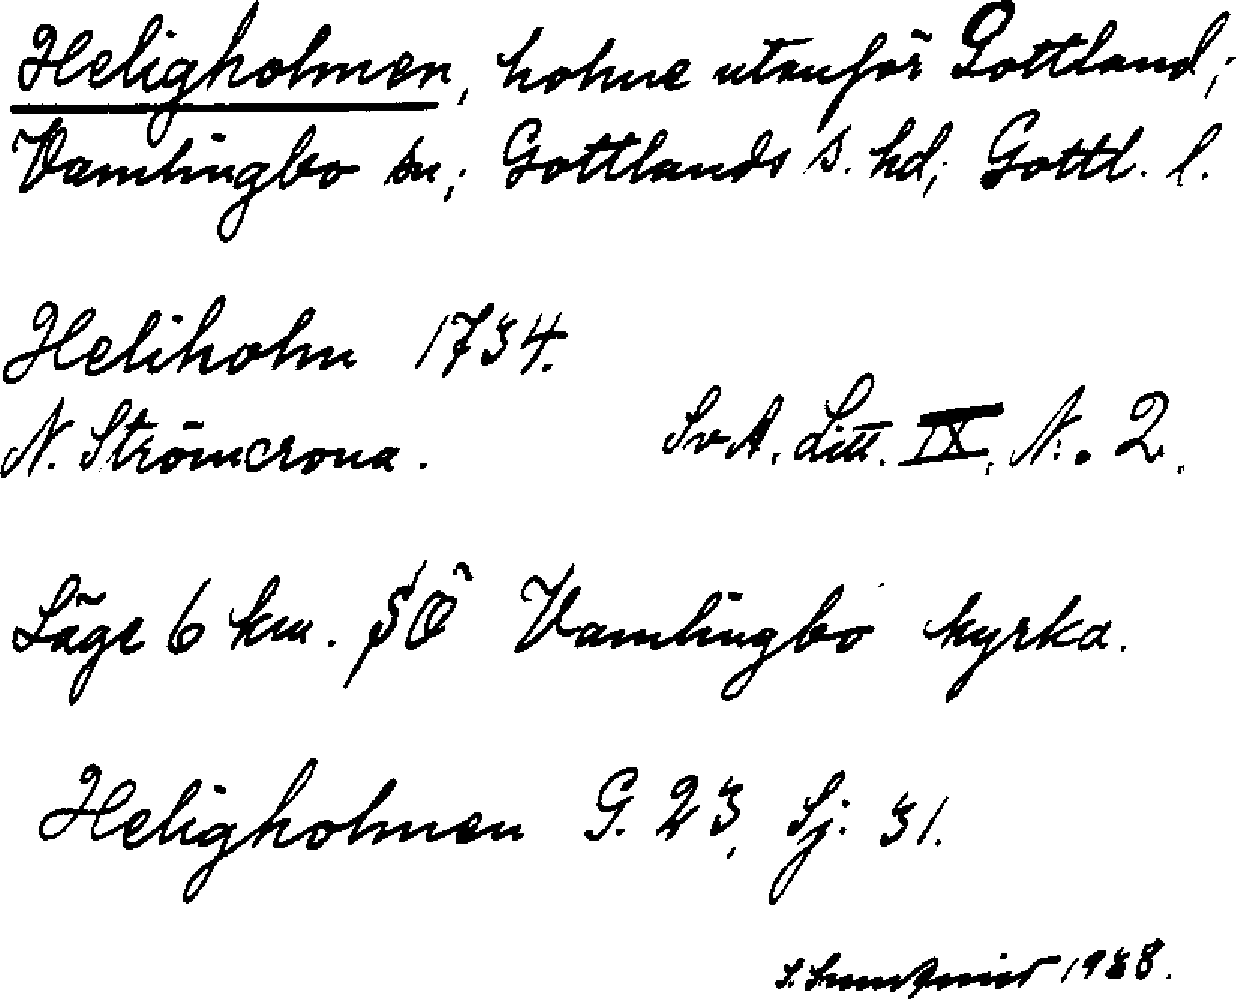 Heligholmen, holme utanför Gottland;
Vamlingbo sn; Gottlands s. hd; Gottl. l.
Heliholm 1734.
N. Strömcrona. SvA. Litt. IX, N:o 2.
Läge 6 km. SÖ Vamlingbo kyrka.
Heligholmen G. 23, Sj. 31.
1938.